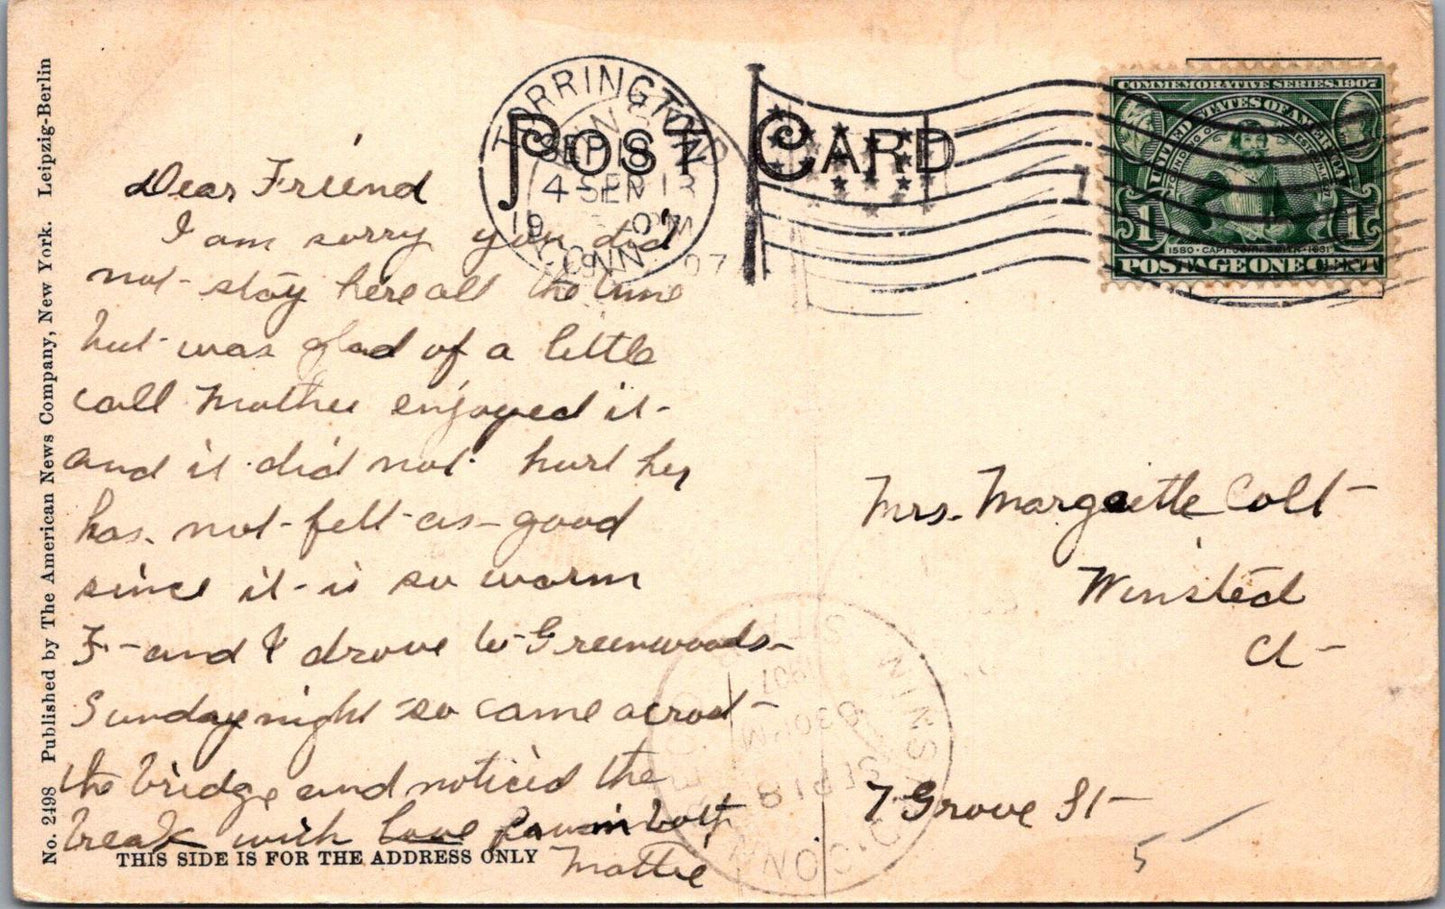 No. 2498 Published by The American News Company, New York. Leipzig-Berlin
POST CARD
TORRINGTON
SEP 18
4
1907
CONN.
COMMEMORATIVE SERIES 1907
UNITED STATES OF AMERICA
1 1
1580 · CAPT. JOHN SMITH · 1631
POSTAGE ONE CENT
1
Dear Friend
I am sorry you did
not - stay here all the time
but - was glad of a little
call Mother enjoyed it -
and it did not hurt her
has not - felt - as - good
since it - is so warm
F - and I drove to - Greenwoods -
Sunday night so came across -
the bridge and noticed the
break with love
Mattie
THIS SIDE IS FOR THE ADDRESS ONLY
Mrs. Margaette Colt -
Winsted
Ct -
7 Grove St -
5
WINSTED, CONN.
SEP 18
630 PM
1907